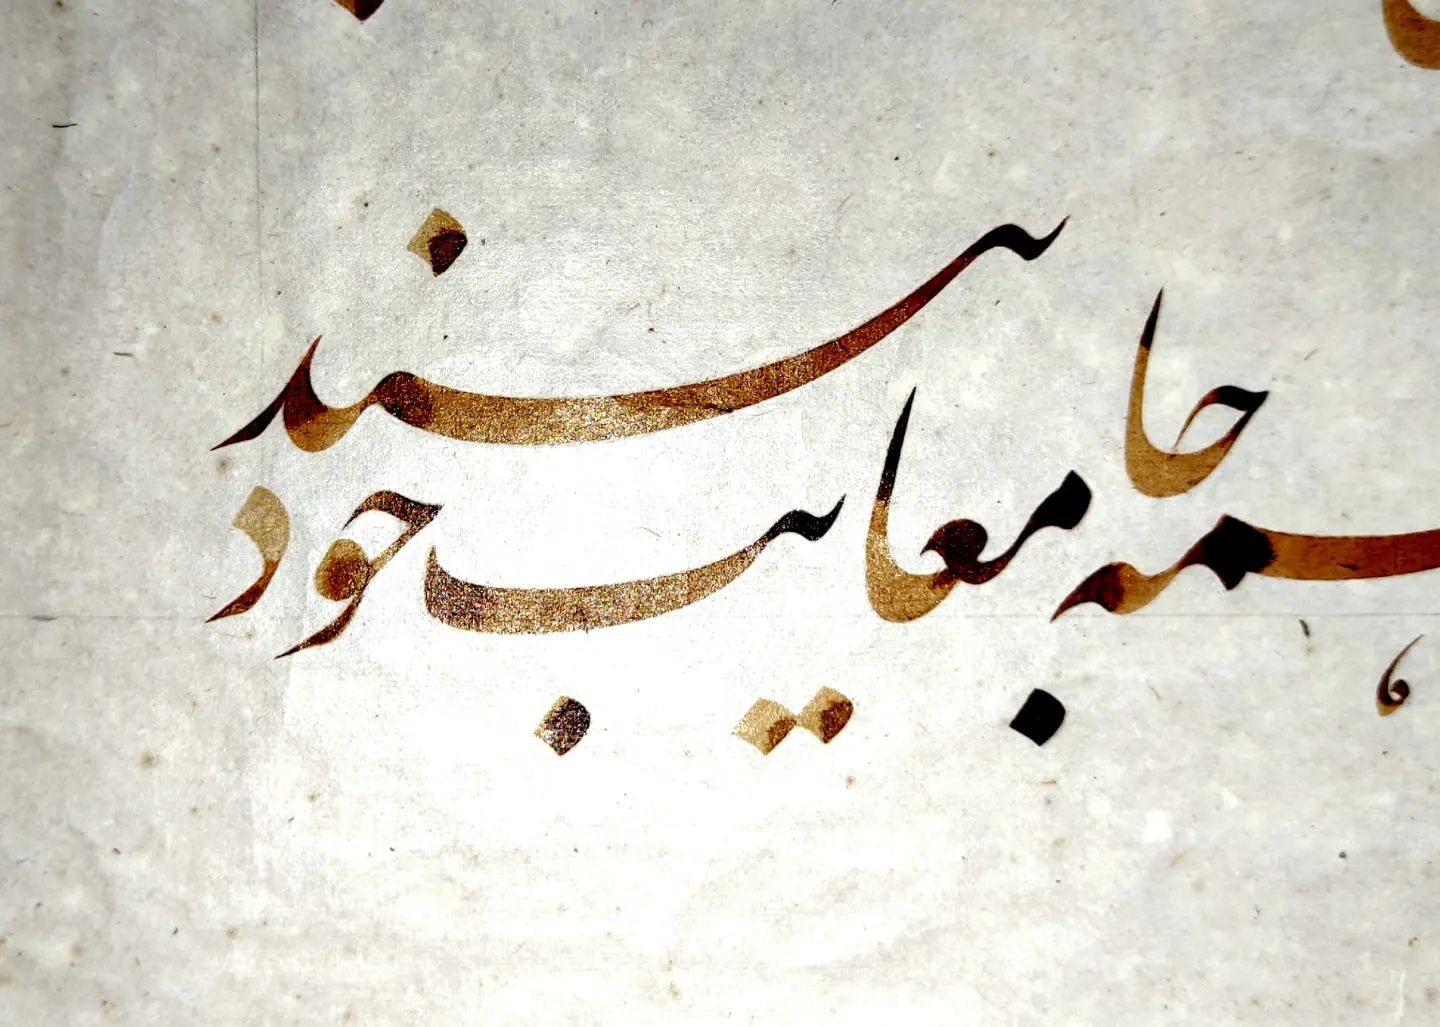 همه جا معایب خود سند